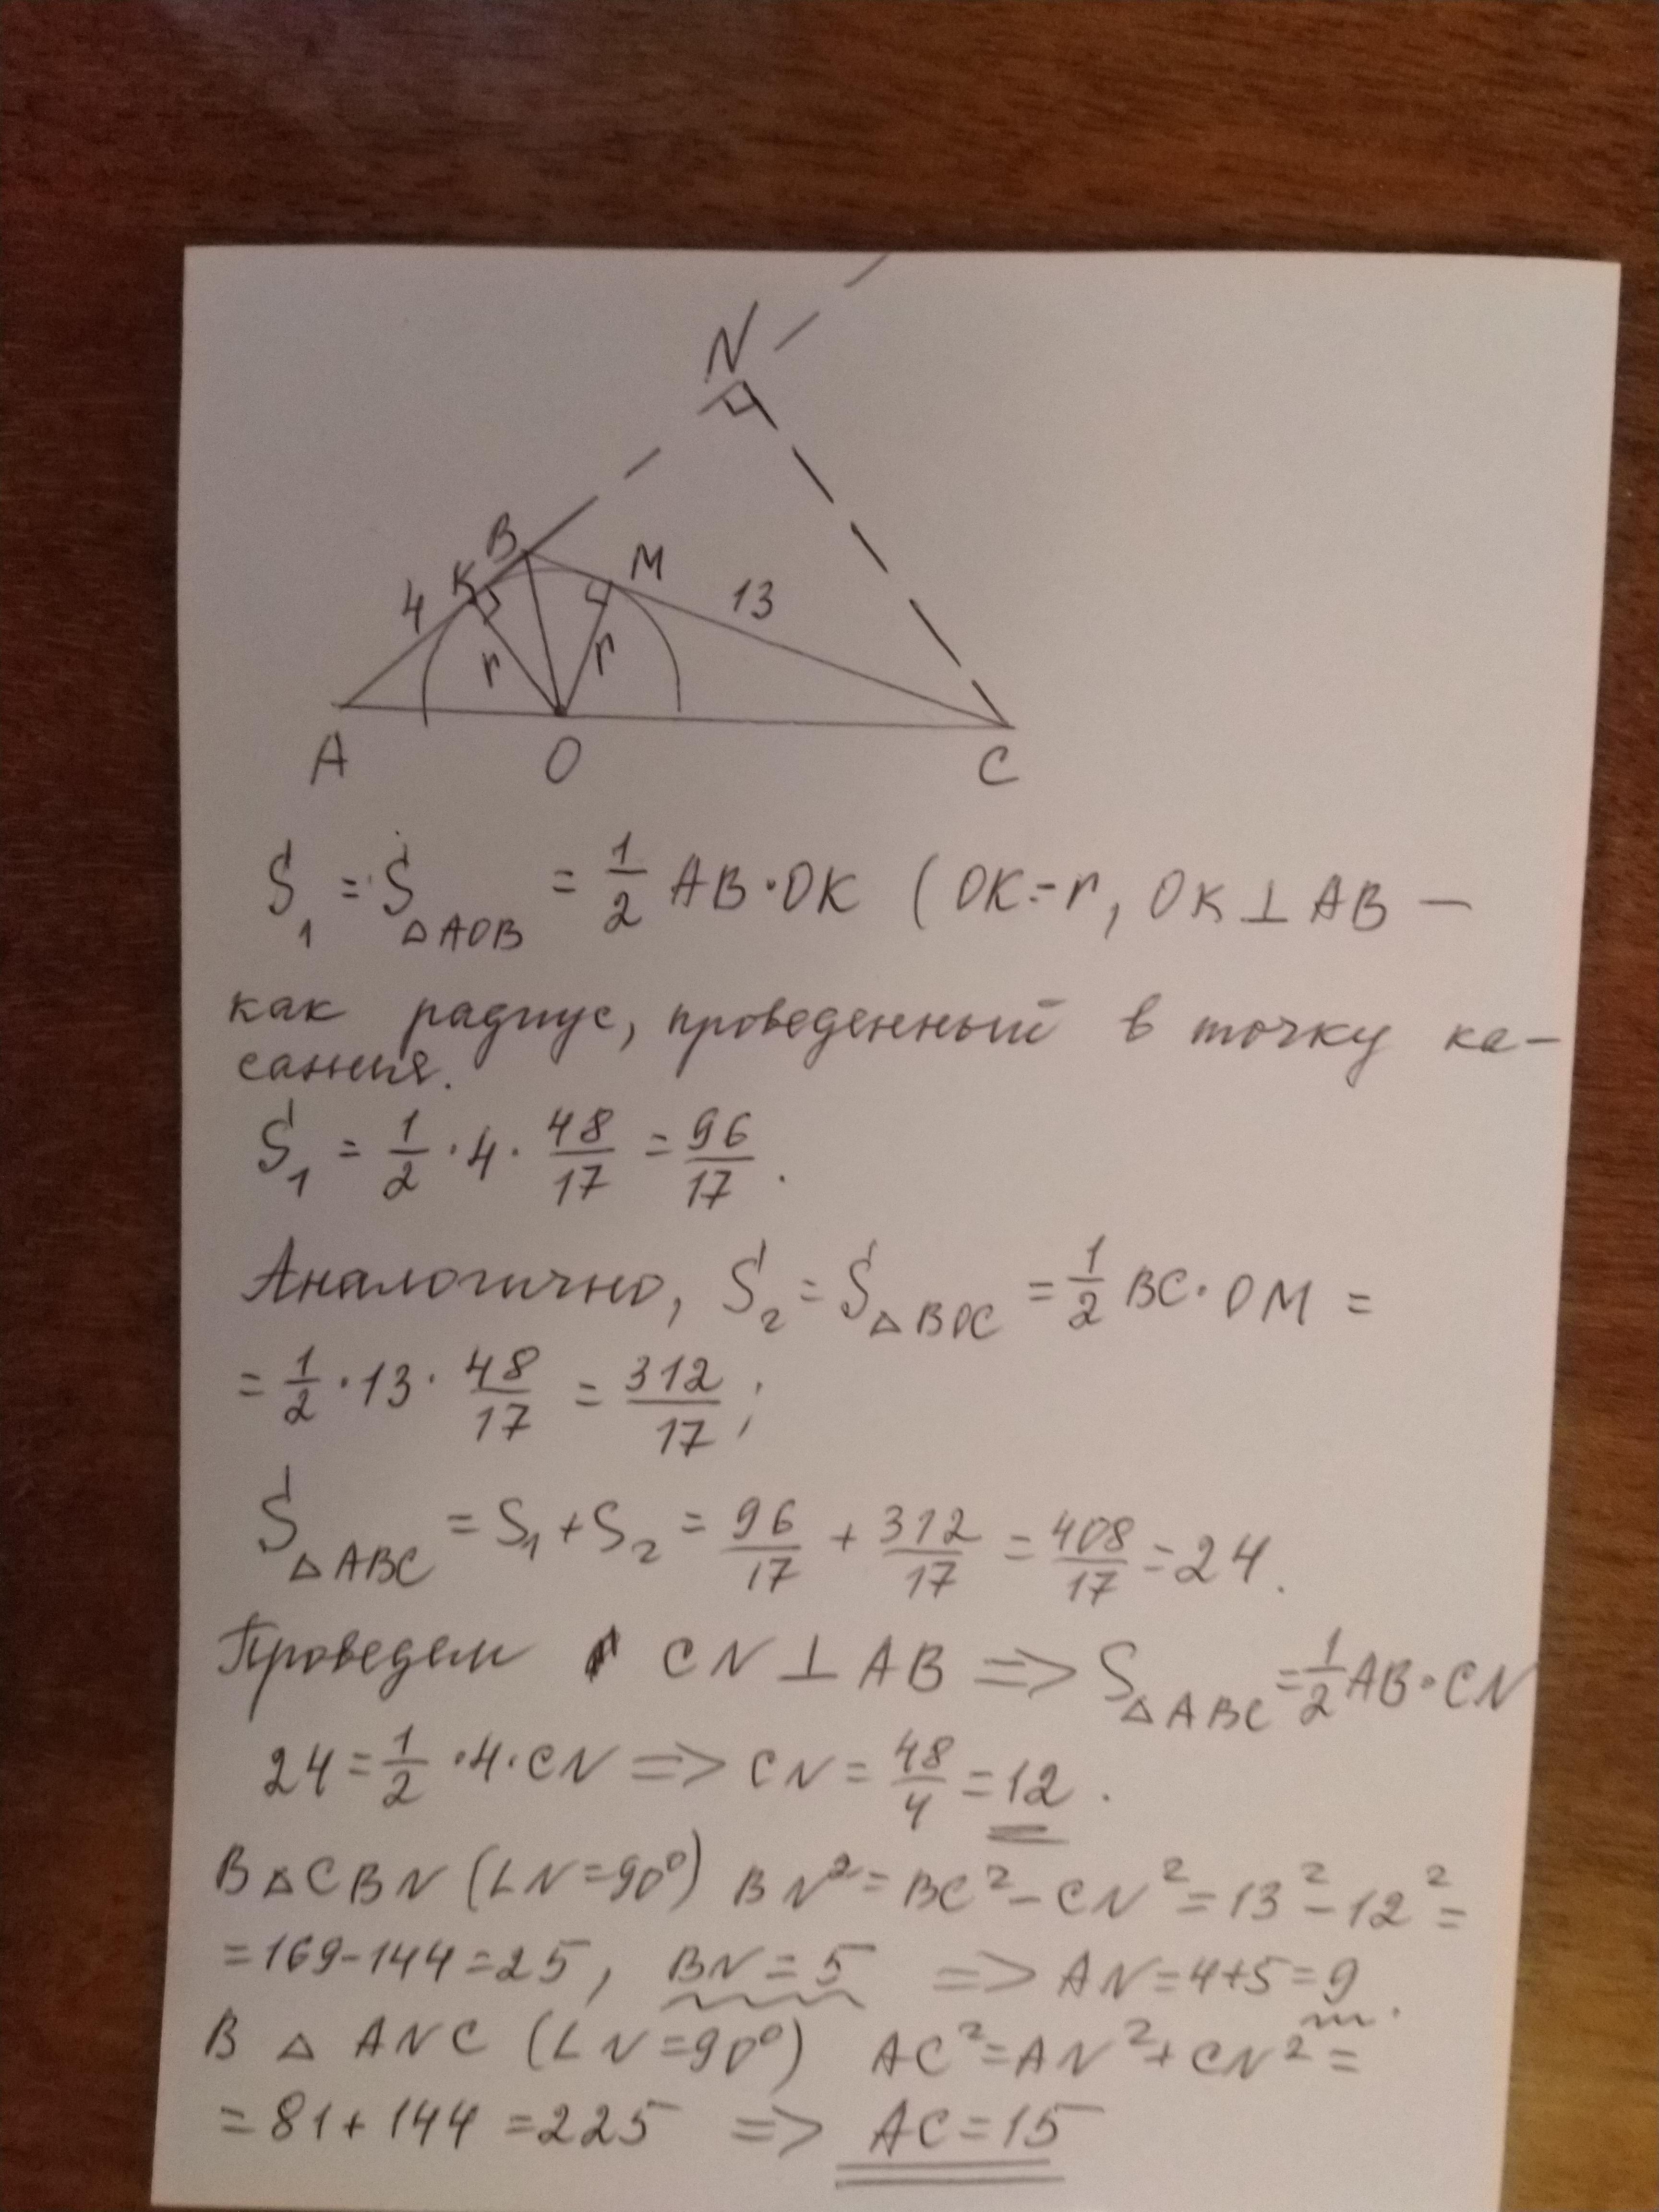 N
B
K
M
4
13
r
r
A
O
C
S₁ = S△AOB = 1/2 AB·OK (OK=r, OK⊥AB —
как радиус, проведенный в точку ка-
сания.
S₁ = 1/2 · 4 · 48/17 = 96/17.
Аналогично, S₂ = S△BOC = 1/2 BC·OM =
= 1/2 · 13 · 48/17 = 312/17;
S△ABC = S₁ + S₂ = 96/17 + 312/17 = 408/17 = 24.
Проведем CN ⊥ AB => S△ABC = 1/2 AB·CN
24 = 1/2 · 4 · CN => CN = 48/4 = 12.
В △CBN (∠N=90⁰) BN² = BC² - CN² = 13² - 12² =
= 169 - 144 = 25, BN = 5 => AN = 4+5 = 9.
В △ ANC (∠N=90⁰) AC² = AN² + CN² =
= 81 + 144 = 225 => AC = 15